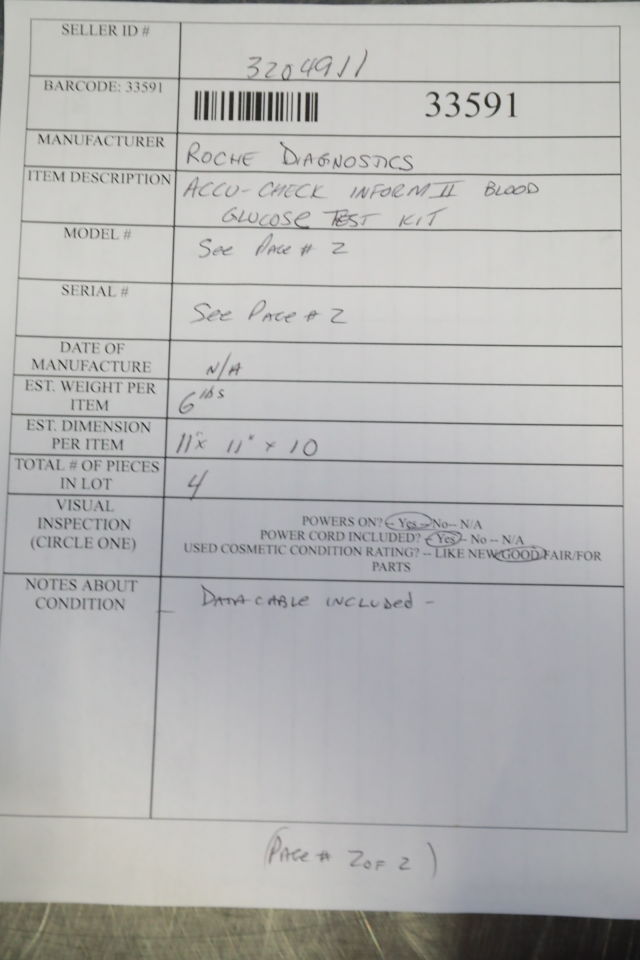 SELLER ID #
3204911
BARCODE: 33591
33591
MANUFACTURER
ROCHE DIAGNOSTICS
ITEM DESCRIPTION
ACCU-CHECK INFORM II BLOOD
GLUCOSE TEST KIT
MODEL #
See PAGE # 2
SERIAL #
See PAGE # 2
DATE OF
MANUFACTURE
N/A
EST. WEIGHT PER
ITEM
6 lbs
EST. DIMENSION
PER ITEM
11" x 11" x 10
TOTAL # OF PIECES
IN LOT
4
VISUAL
INSPECTION
(CIRCLE ONE)
POWERS ON? -- Yes -- No-- N/A
POWER CORD INCLUDED? -- Yes -- No -- N/A
USED COSMETIC CONDITION RATING? -- LIKE NEW/GOOD/FAIR/FOR
PARTS
NOTES ABOUT
CONDITION
DATA CABLE INCLUDED -
(PAGE # 2 OF 2)